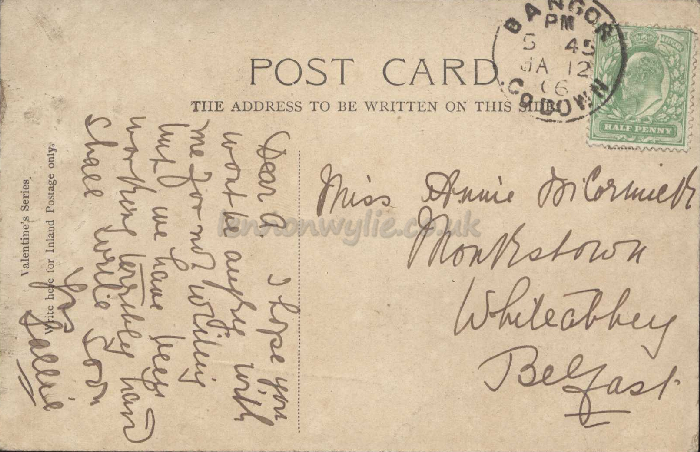 POST CARD.
THE ADDRESS TO BE WRITTEN ON THIS SIDE.
BANGOR
PM
5 45
JA 12
06
CO DOWN
HALF PENNY
Miss Annie McCormick
Monkstown
Whiteabbey
Belfast
Dear A. I hope you
wont be angry with
me for not writing
but we have been
working terribly hard
shall write soon
Yrs
Sallie
Write here for Inland Postage only.
Valentine's Series.
lennonwylie.co.uk